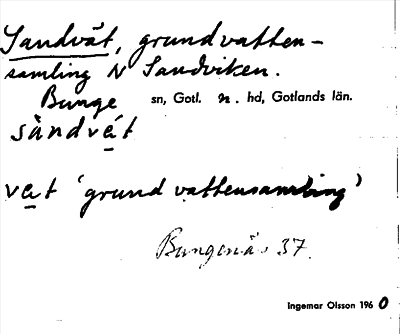 Sandvät, grundvatten-
samling N Sandviken.
Bunge sn, Gotl. n. hd, Gotlands län.
sàndvát
vat 'grundvattensamling'
Bungenäs 37.
Ingemar Olsson 1960